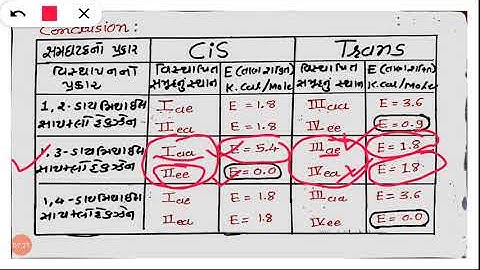 Conclusion:
સમઘટકનો પ્રકાર CiS Trans
વિસ્થાપનનો પ્રકાર વિસ્થાપિત સમૂહનું સ્થાન E (તાણશક્તિ) K.Cal/Mole વિસ્થાપિત સમૂહનું સ્થાન E (તાણશક્તિ) K.Cal/Mole
1,2-ડાયમિથાઈલ I ae E = 1.8 III aa E = 3.6
સાયક્લોહેક્ઝેન II ea E = 1.8 IV ee E = 0.9
1,3-ડાયમિથાઈલ I aa E = 5.4 III ae E = 1.8
સાયક્લોહેક્ઝેન II ee E = 0.0 IV ea E = 1.8
1,4-ડાયમિથાઈલ I ae E = 1.8 III aa E = 3.6
સાયક્લોહેક્ઝેન II ea E = 1.8 IV ee E = 0.0